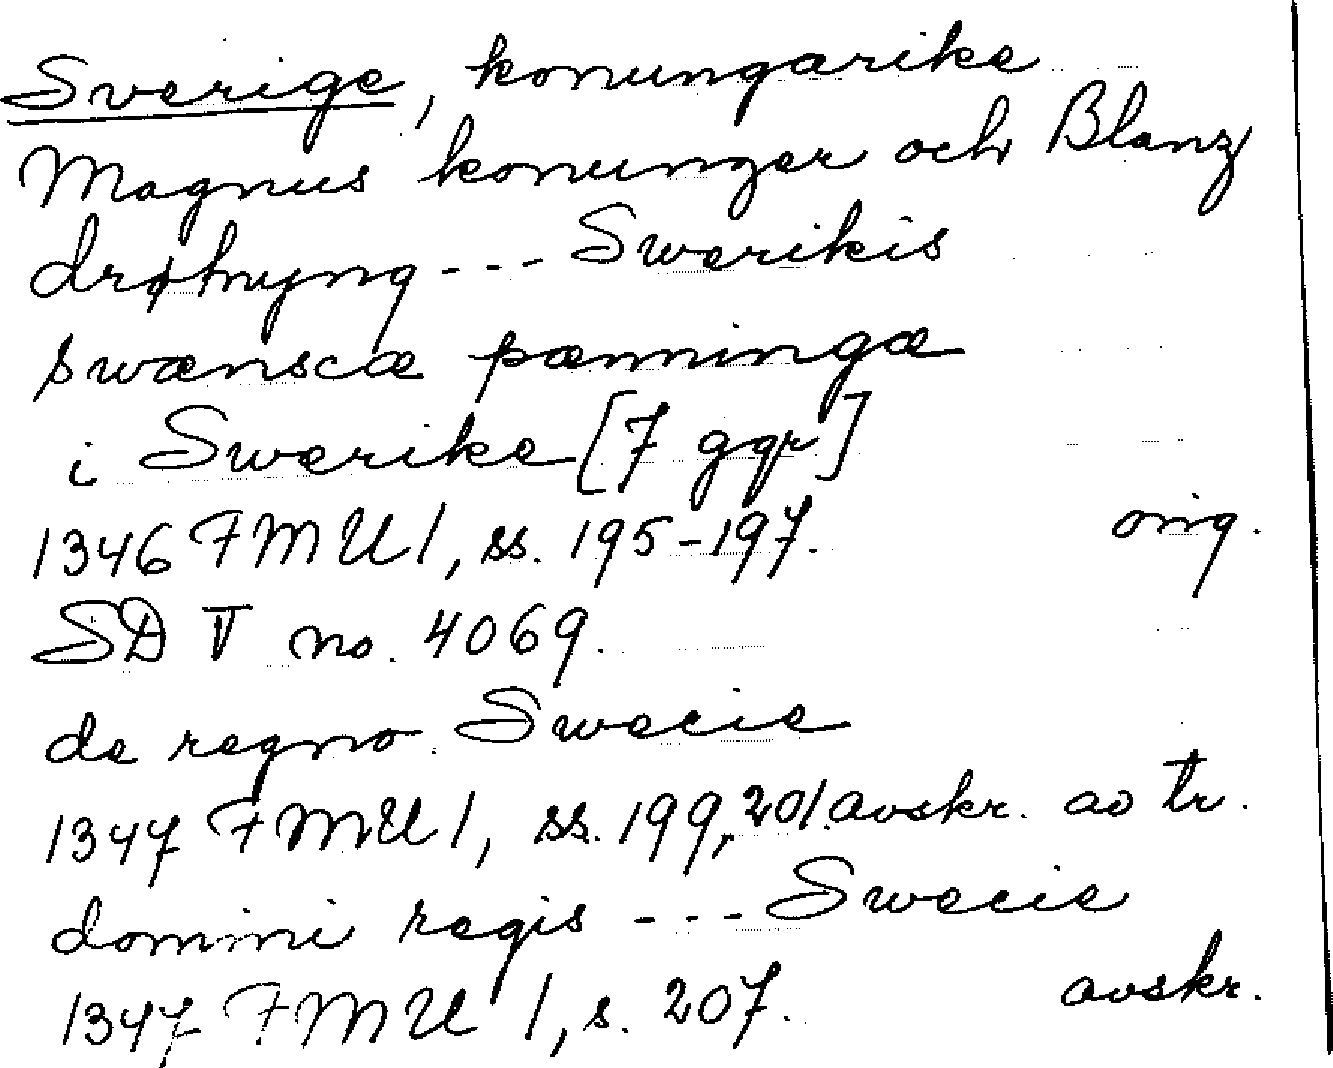 Sverige, konungarike
Magnus konunger och Blanz
drøtnyng --- Swerikis
swænscæ pænningæ
i Swerike [7 ggr]
1346 FMU 1, ss. 195-197. orig.
SD V no. 4069.
de regno Swecie
1347 FMU 1, ss. 199, 201. avskr. ao tr.
domini regis --- Swecie
1347 FMU 1, s. 207. avskr.